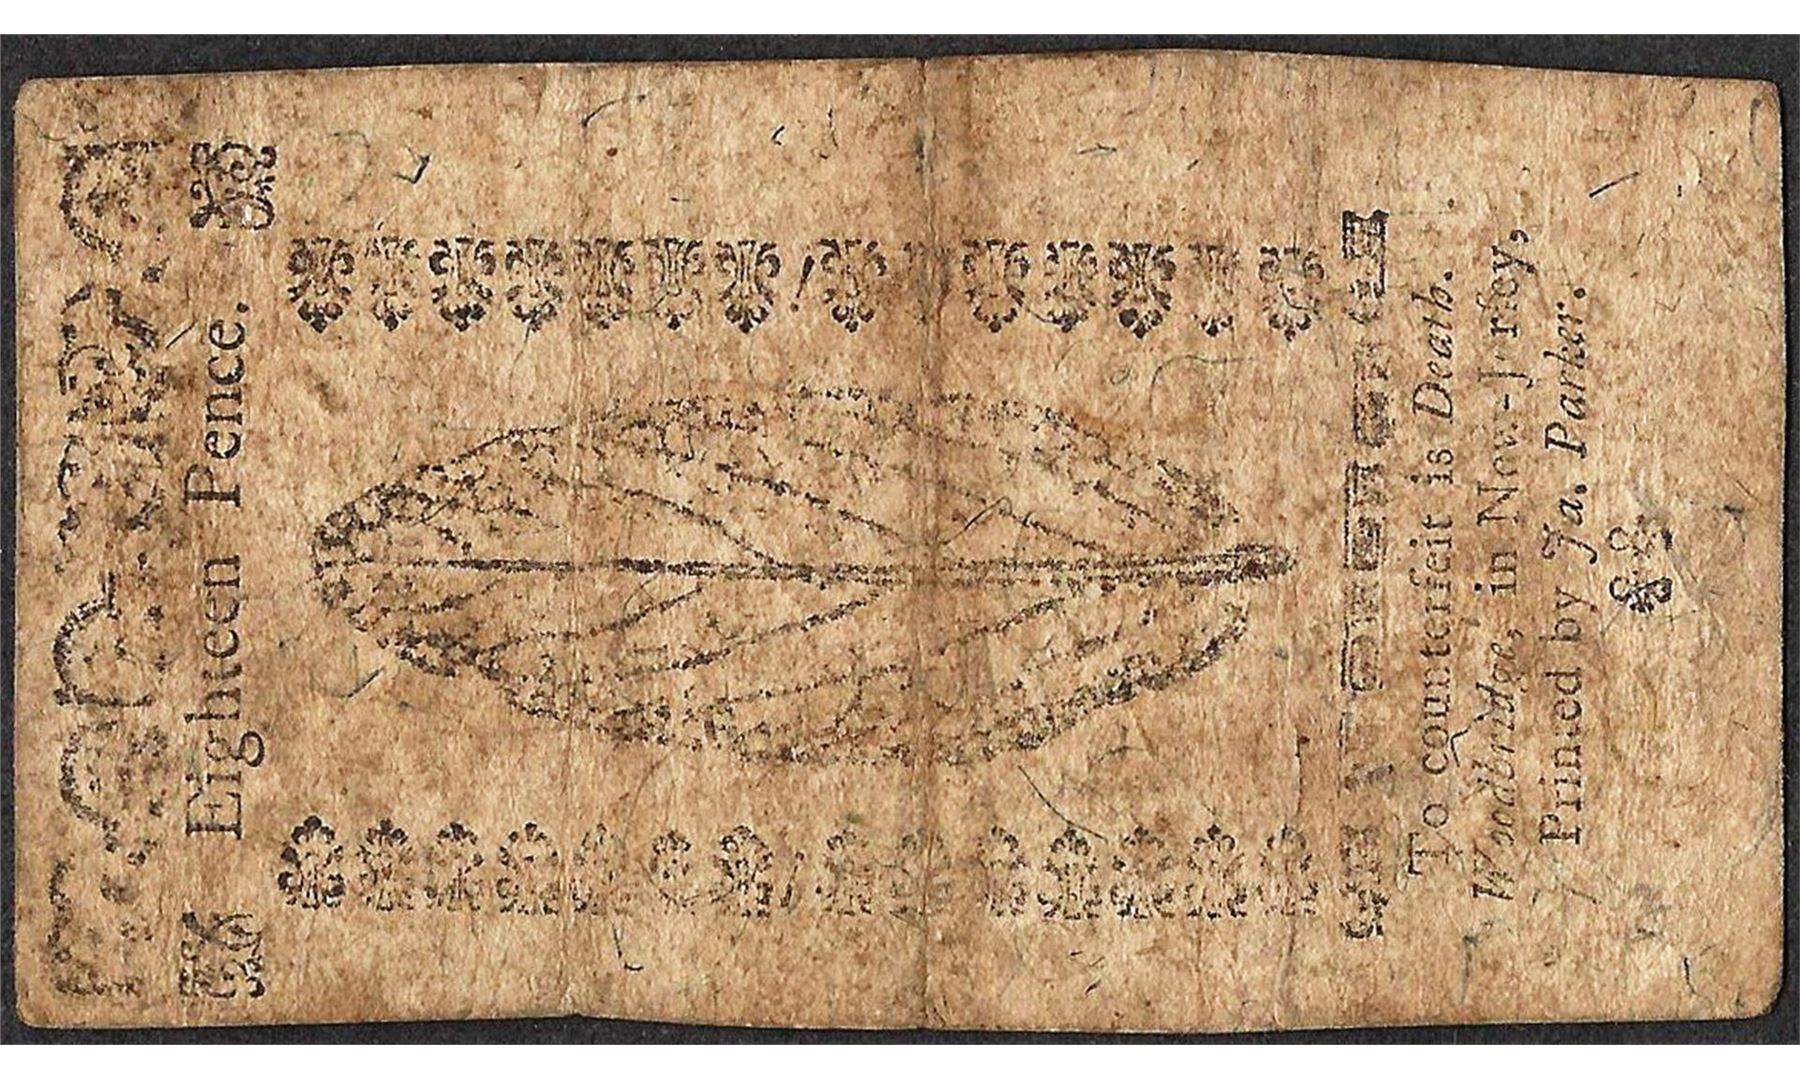 Eighteen Pence.
To counterfeit is Death.
Woodbridge, in New-Jersey,
Printed by Ja. Parker.